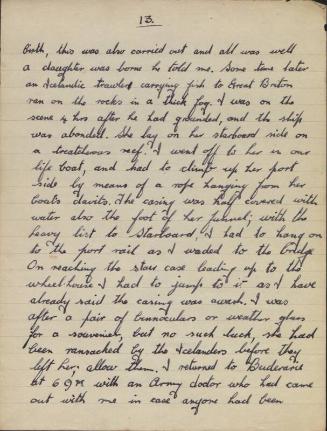 13.
Birth, this was also carried out and all was well
a daughter was borne he told me. Some time later
an Icelandic trawler carrying fish to Great Briton
ran on the rocks in a thick fog. I was on the
scene 4 hrs after he had grounded, and the ship
was abonded. She lay on her starboard side on
a treatcherous reef. I went off to her in our
life boat, and had to climb up her port
side by means of a rope hanging from her
boats davits. The casing was half covered with
water also the foot of her funnel; with the
heavy list to Starboard, I had to hang on
to the port rail as I waded to the bridge
On reaching the stair case leading up to the
wheelhouse I had to jump to it as I have
already said the casing was awash. I was
after a pair of binnoculars or weather glass
for a souvenier, but no such luck, she had
been ransacked by the Icelanders before they
left her; allow them. I returned to Buderarie
at 6 9M with an Army doctor who had came
out with me in case anyone had been